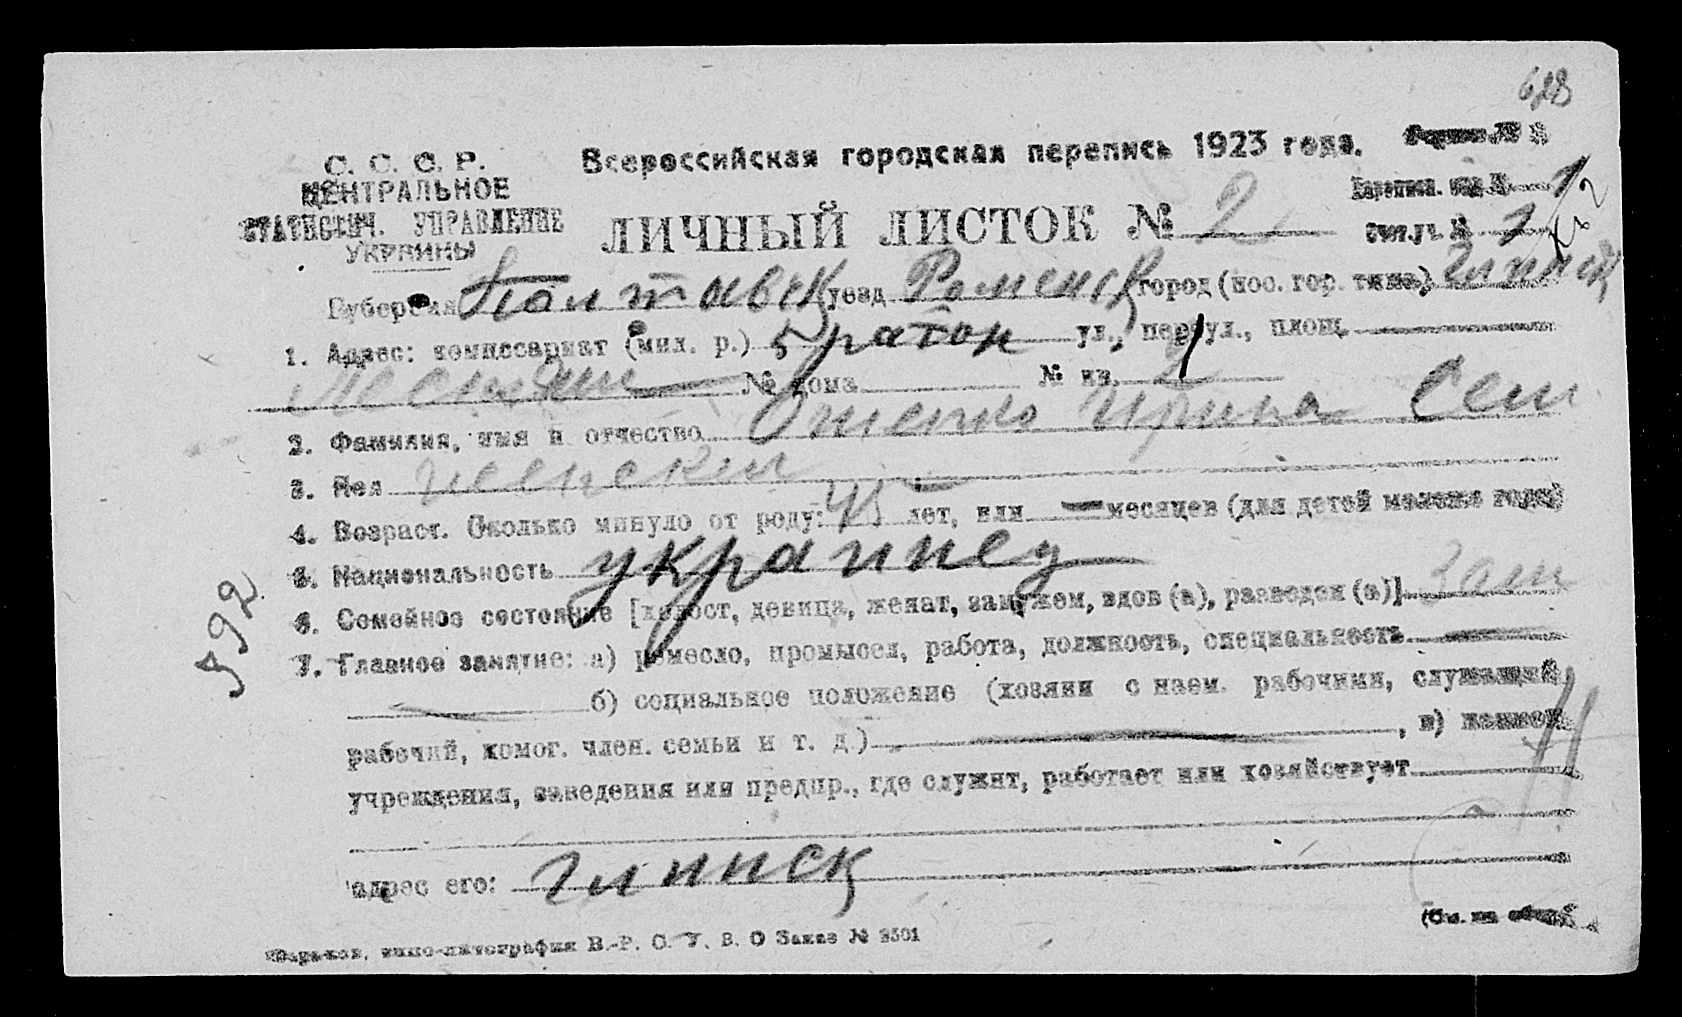 628
С. С. С. Р.
ЦЕНТРАЛЬНОЕ
СТАТИСТИЧ. УПРАВЛЕНИЕ
УКРАИНЫ
Всероссийская городская перепись 1923 года.
ЛИЧНЫЙ ЛИСТОК № 2
1
1
Губерния Полтавск уезд Роменск город (пос. гор. типа) Глинск
1. Адрес: комиссариат (мил. р.) 5 район ул., переул., площ.
№ дома № кв. 21
2. Фамилия, имя и отчество Ирина Сем
3. Пол женский
4. Возраст. Сколько минуло от роду: 45 лет, или — месяцев (для детей моложе года)
5. Национальность украинец
6. Семейное состояние [холост, девица, женат, замужем, вдов (а), разведен (а)] Зам
7. Главное занятие: а) ремесло, промысел, работа, должность, специальность —
— б) социальное положение (хозяин с наем. рабочими, служащий,
рабочий, помог. член. семьи и т. д.) —, в)
учреждения, заведения или предпр., где служит, работает или хозяйствует
адрес его: Глинск
592
(См. на
Харьков, В.-Р. С. У. В. О Заказ № 3501